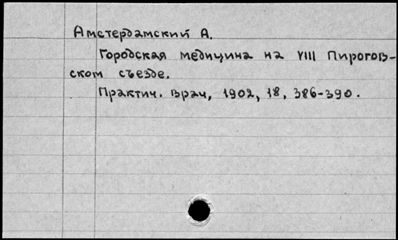 Амстердамский А.
Городская медицина на VIII Пирогов-
ском съезде.
Практич. врач, 1902, 18, 386-390.